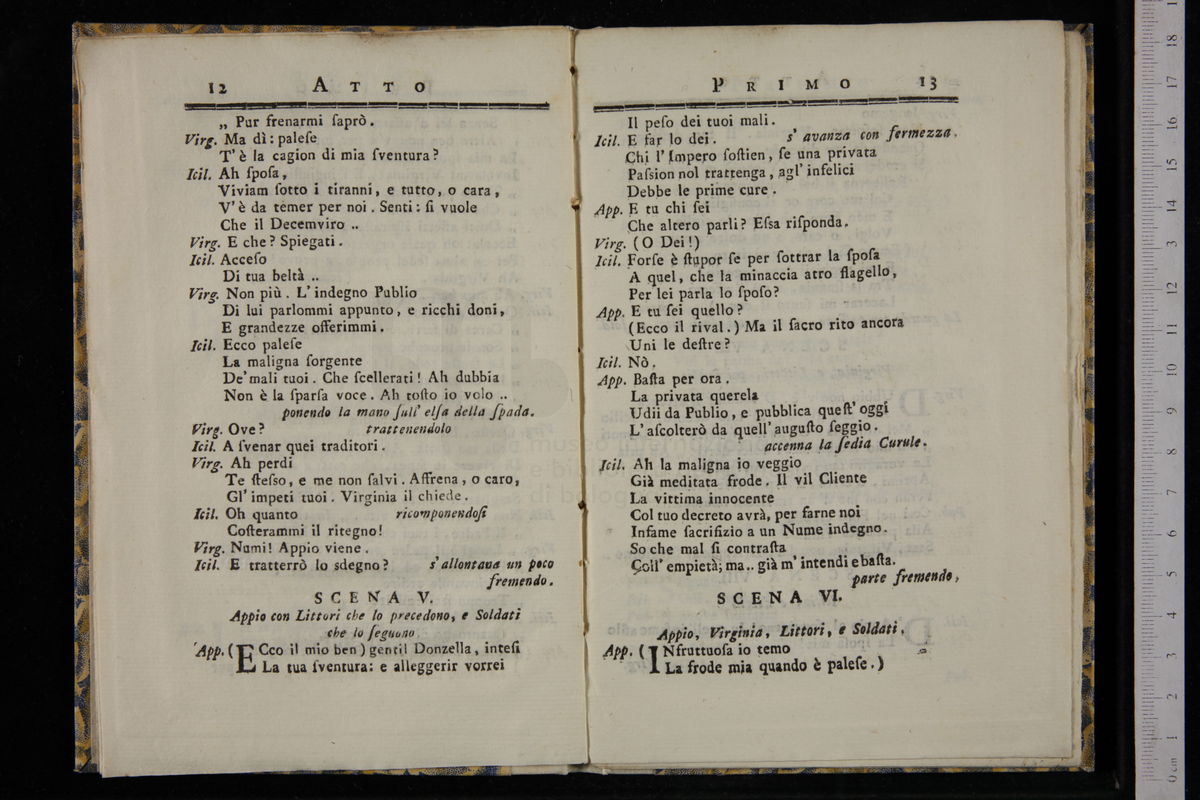 12 ATTO
„ Pur frenarmi ſaprò.
Virg. Ma dì: paleſe
T' è la cagion di mia ſventura?
Icil. Ah ſpoſa,
Viviam ſotto i tiranni, e tutto, o cara,
V' è da temer per noi. Senti: ſi vuole
Che il Decemviro ..
Virg. E che? Spiegati.
Icil. Acceſo
Di tua beltà ..
Virg. Non più. L' indegno Publio
Di lui parlommi appunto, e ricchi doni,
E grandezze offerimmi.
Icil. Ecco paleſe
La maligna ſorgente
De' mali tuoi. Che ſcellerati! Ah dubbia
Non è la ſparſa voce. Ah toſto io volo ..
ponendo la mano ſull' elſa della ſpada.
Virg. Ove? trattenendolo
Icil. A ſvenar quei traditori.
Virg. Ah perdi
Te ſteſso, e me non ſalvi. Affrena, o caro,
Gl' impeti tuoi. Virginia il chiede.
Icil. Oh quanto ricomponendoſi
Coſterammi il ritegno!
Virg. Numi! Appio viene.
Icil. E tratterrò lo sdegno? s' allontana un poco
fremendo.
SCENA V.
Appio con Littori che lo precedono, e Soldati
che lo ſeguono.
App. (ECco il mio ben) gentil Donzella, inteſi
La tua ſventura: e alleggerir vorrei
PRIMO 13
Il peſo dei tuoi mali.
Icil. E far lo dei. s' avanza con fermezza.
Chi l' Impero ſoſtien, ſe una privata
Paſsion nol trattenga, agl' infelici
Debbe le prime cure.
App. E tu chi ſei
Che altero parli? Eſsa riſponda.
Virg. (O Dei!)
Icil. Forſe è ſtupor ſe per ſottrar la ſpoſa
A quel, che la minaccia atro flagello,
Per lei parla lo ſpoſo?
App. E tu ſei quello?
(Ecco il rival.) Ma il ſacro rito ancora
Uni le deſtre?
Icil. Nò.
App. Baſta per ora.
La privata querela
Udii da Publio, e pubblica queſt' oggi
L' aſcolterò da quell' auguſto ſeggio.
accenna la ſedia Curule.
Icil. Ah la maligna io veggio
Già meditata frode. Il vil Cliente
La vittima innocente
Col tuo decreto avrà, per farne noi
Infame ſacrifizio a un Nume indegno.
So che mal ſi contraſta
Coll' empietà; ma.. già m' intendi e baſta.
parte fremendo,
SCENA VI.
Appio, Virginia, Littori, e Soldati.
App. (INfruttuoſa io temo
La frode mia quando è paleſe.)